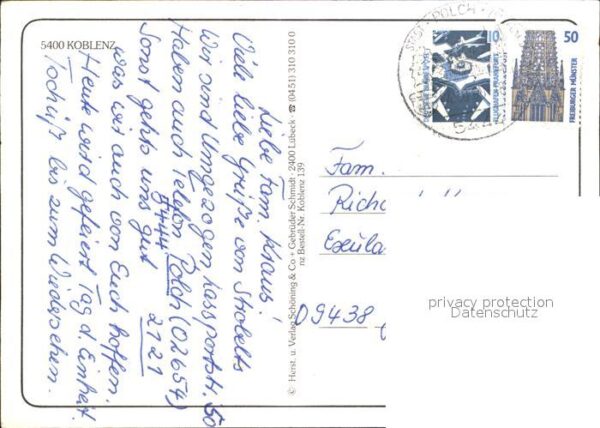 5400 KOBLENZ
Liebe Fam. Knaus!
Viele liebe Grüße von Strobelts
Wir sind Umgezogen, 50
Haben auch Telefon (02654)
5444 Polch 2121
Sonst gehts uns gut
was wir auch von Euch hoffen.
Heute wird gefeiert Tag d. Einheit
Tschüß bis zum Wiedersehen.
© Herst. u. Verlag Schöning & Co + Gebrüder Schmidt · 2400 Lübeck · ☎ (0451) 310 310 0
nz Bestell-Nr. Koblenz 139
POLCH
10
50
FREIBURGER MÜNSTER
Fam.
Richa
Exula
09438
privacy protection
Datenschutz